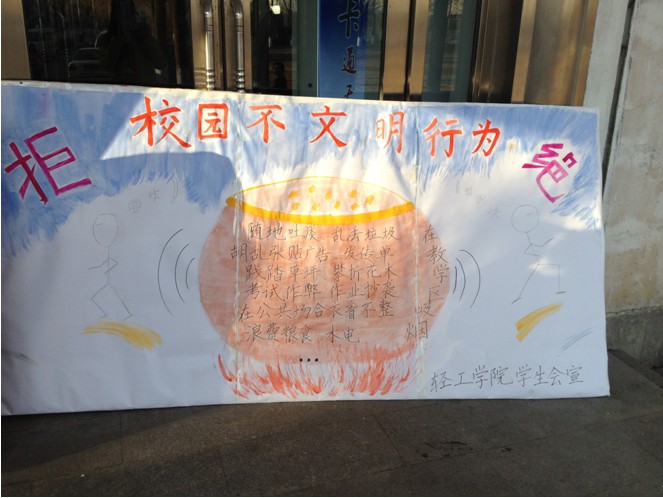 卡通
校园不文明行为
拒
绝
随地吐痰 乱丢垃圾
胡乱张贴广告 发传单
践踏草坪 攀折花木
考试作弊 作业抄袭
在公共场合衣着不整
浪费粮食 水电
在教学区吸烟
...
轻工学院学生会宣